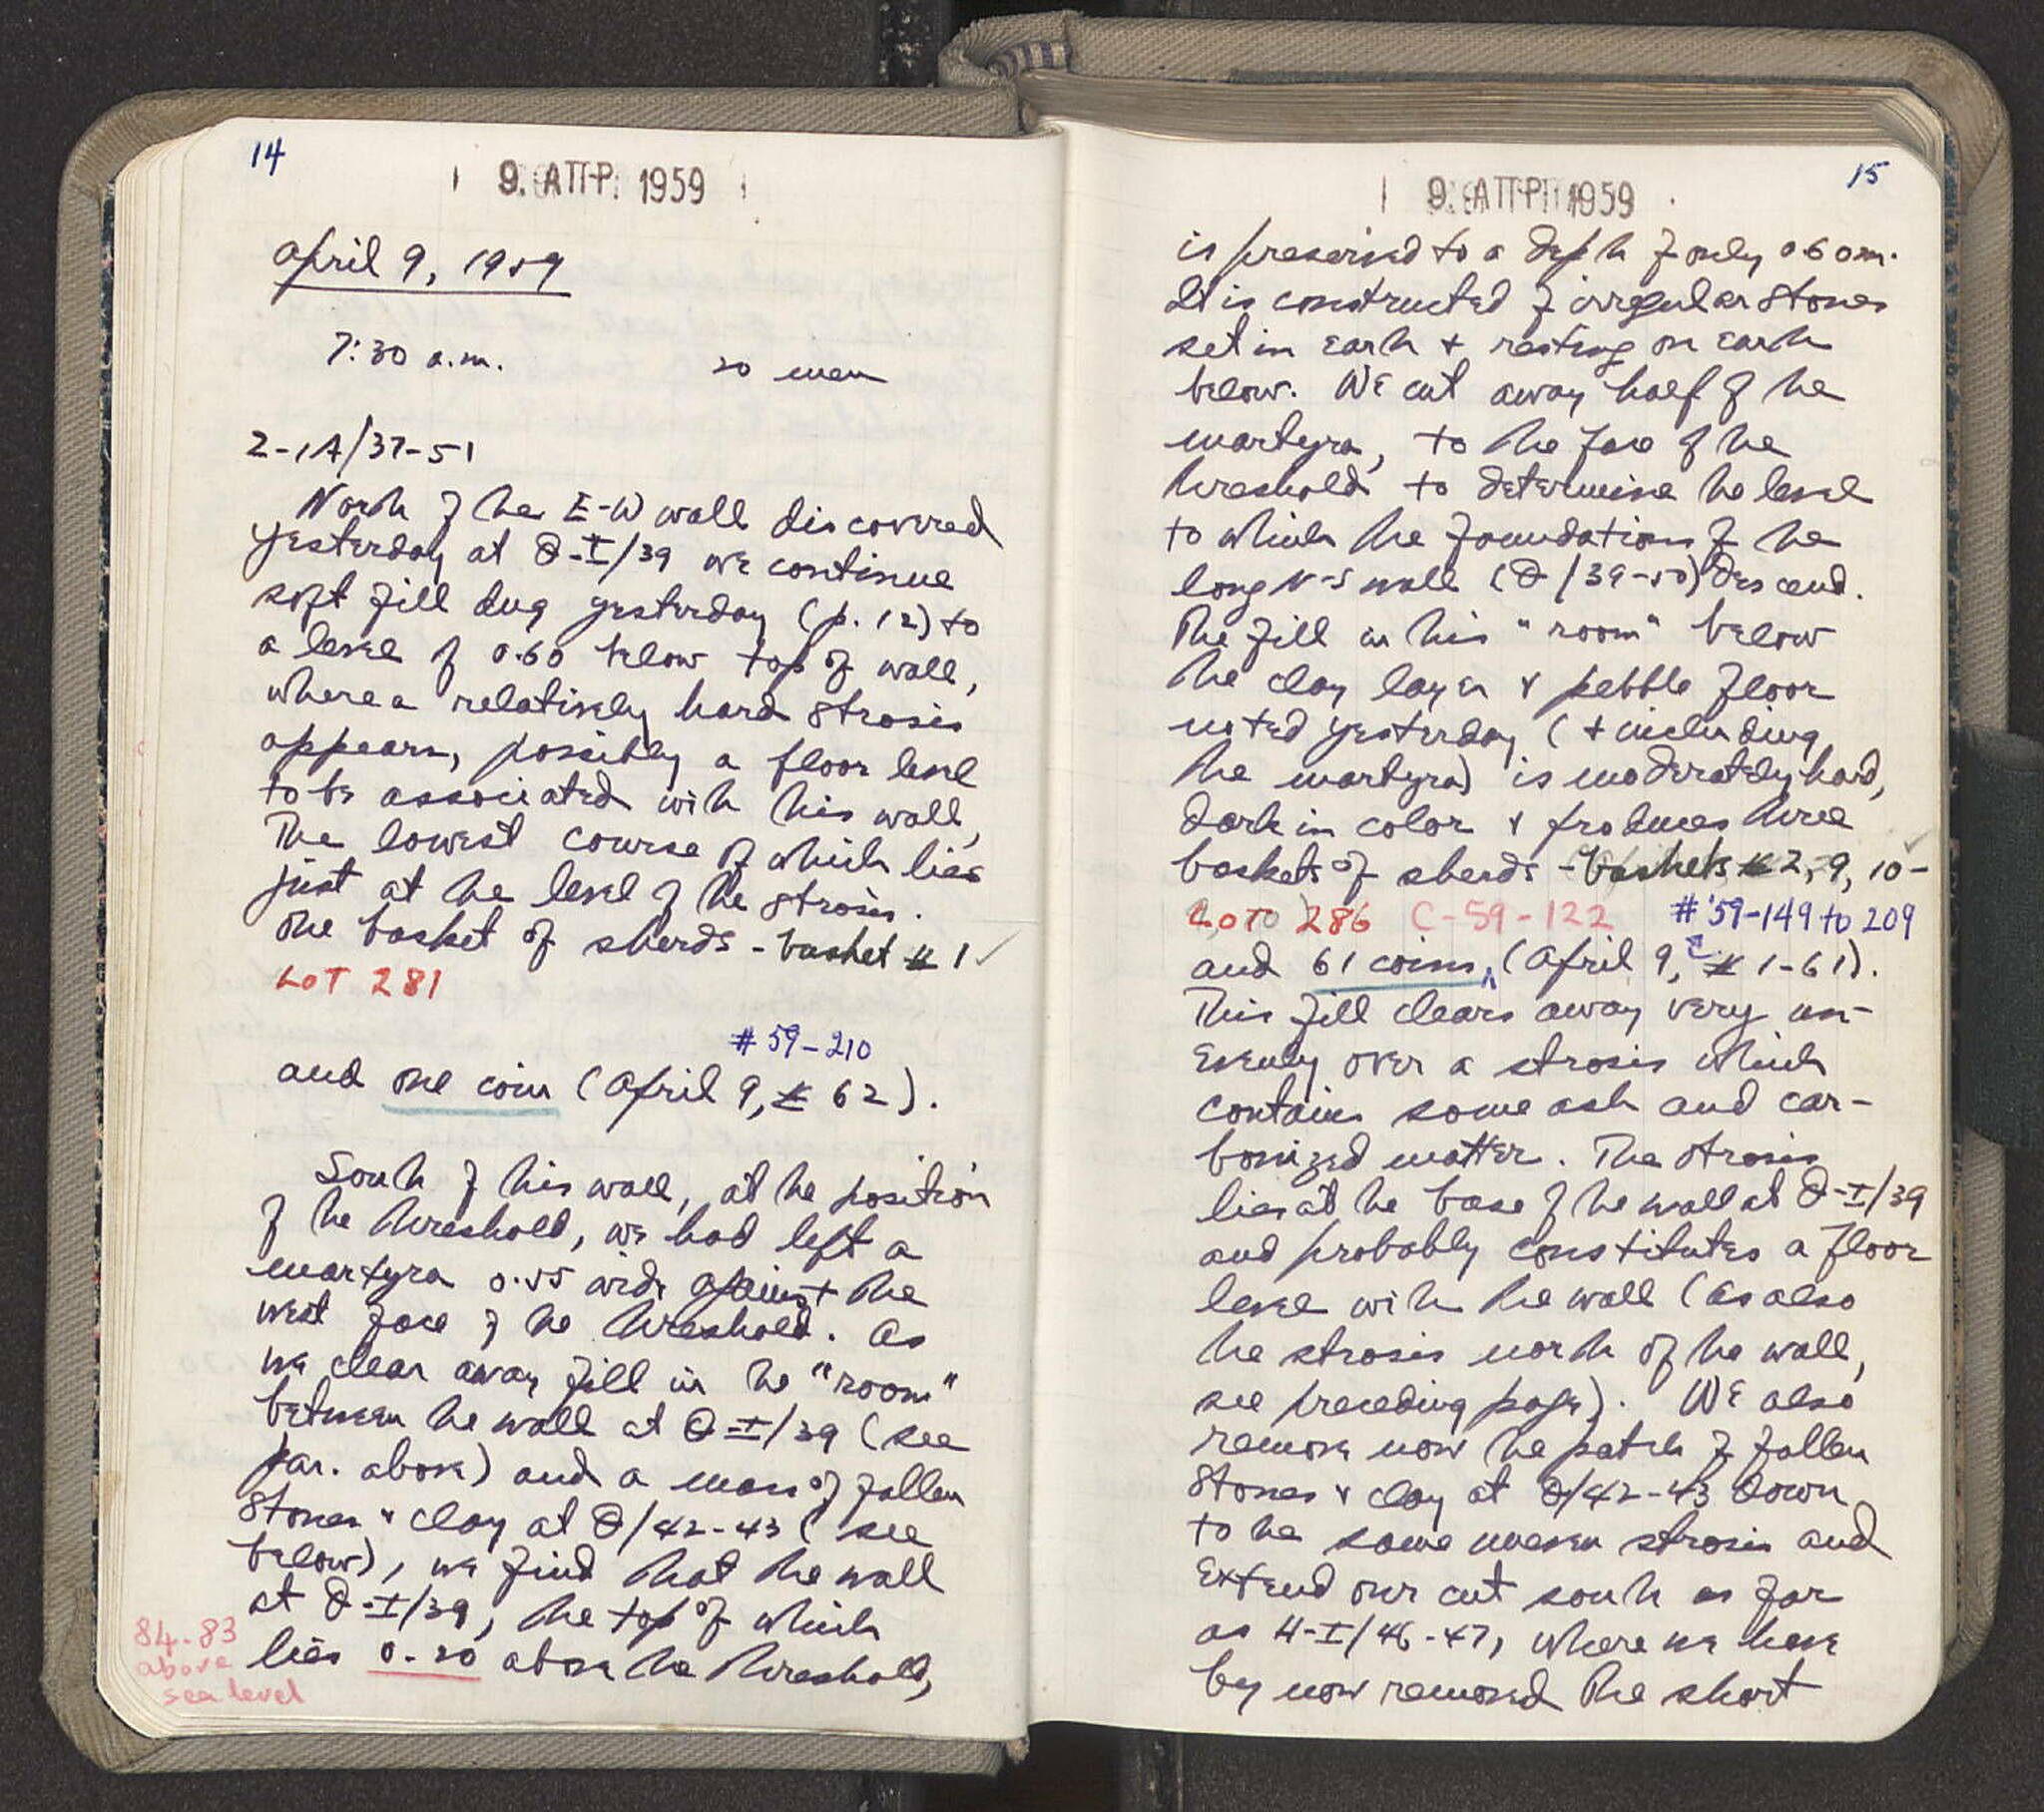 14
9. ΑΠΡ. 1959
April 9, 1959
7:30 a.m. 20 men
2-1A/37-51
North of the E-W wall discovered
yesterday at Θ-I/39 we continue
soft fill dug yesterday (p. 12) to
a level of 0.60 below top of wall,
where a relatively hard strosis
appears, possibly a floor level
to be associated with this wall,
The lowest course of which lies
just at the level of the strosis.
One basket of sherds - basket # 1 ✓
LOT 281
# 59-210
and one coin (April 9, # 62).
South of this wall, at the position
of the threshold, we had left a
martyra 0.55 wide against the
west face of the threshold. As
we clear away fill in the "room"
between the wall at Θ-I/39 (see
par. above) and a mass of fallen
stones & clay at Θ/42-43 (see
below), we find that the wall
at Θ-I/39, the top of which
lies 0.20 above the threshold,
84.83
above
sea level
15
9. ΑΠΡ. 1959
is preserved to a depth of only 0.60 m.
It is constructed of irregular stones
set in earth + resting on earth
below. We cut away half of the
martyra, to the face of the
threshold to determine the level
to which the foundations of the
long N-S wall (Θ/39-50) descend.
The fill in this "room" below
the clay layer & pebble floor
noted yesterday (+ including
the martyra) is moderately hard,
dark in color & produces three
baskets of sherds - baskets # 2, 9, 10 -
LOT 286 C-59-122 # 59-149 to 209
and 61 coins (April 9, # 1-61).
This fill clears away very un-
evenly over a strosis which
contains some ash and car-
bonized matter. The strosis
lies at the base of the wall at Θ-I/39
and probably constitutes a floor
level with the wall (as also
the strosis north of the wall,
see preceding page). We also
remove now the patch of fallen
stones & clay at Θ/42-43 down
to the same uneven strosis and
extend our cut south as far
as H-I/46-47, where we have
by now removed the short